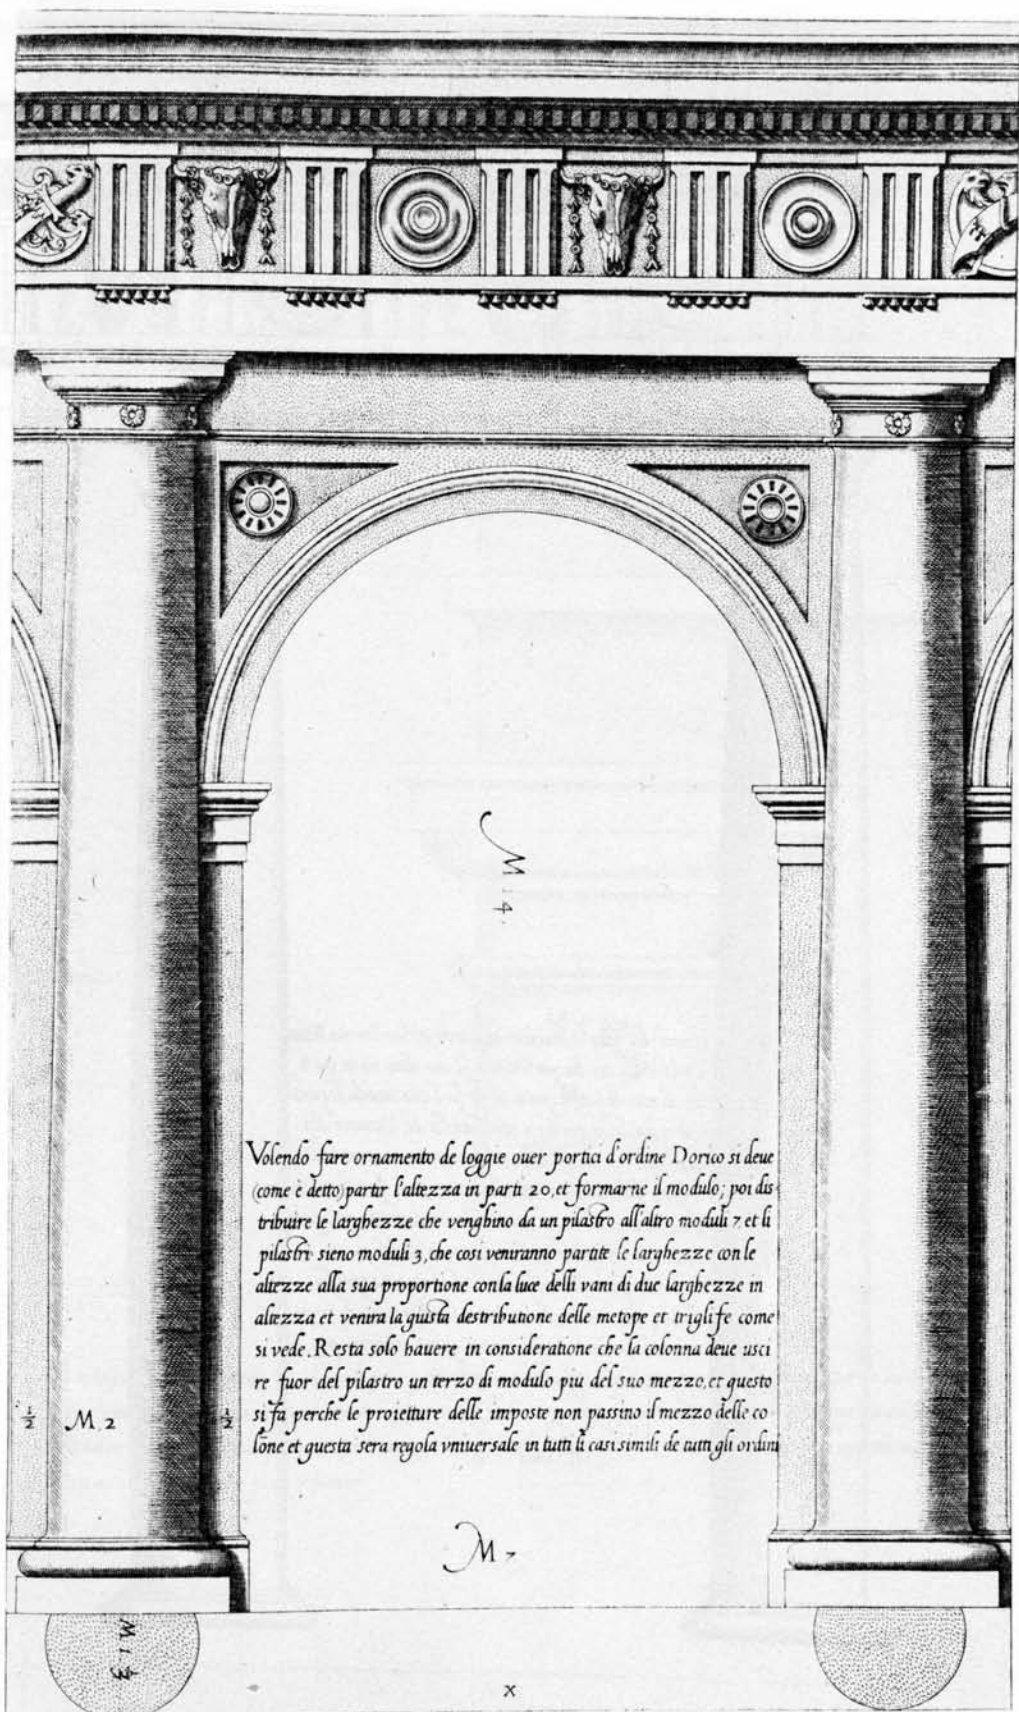 M 14
Volendo fare ornamento de loggie ouer portici d'ordine Dorico si deue
(come è detto) partir l'altezza in parti 20, et formarne il modulo; poi dis
tribuire le larghezze che venghino da un pilastro all'altro moduli 7 et li
pilastri sieno moduli 3, che cosi veniranno partite le larghezze con le
altezze alla sua proportione con la luce delli vani di due larghezze in
altezza et venira la giusta destributione delle metope et triglife come
si vede. Resta solo hauere in consideratione che la colonna deue usci
re fuor del pilastro un terzo di modulo piu del suo mezzo, et questo
si fa perche le proietture delle imposte non passino il mezzo delle co
lone et questa sera regola vniuersale in tutti li casi simili de tutti gli ordini
1/2 M. 2 1/2
M 7
M 1 1/3
X